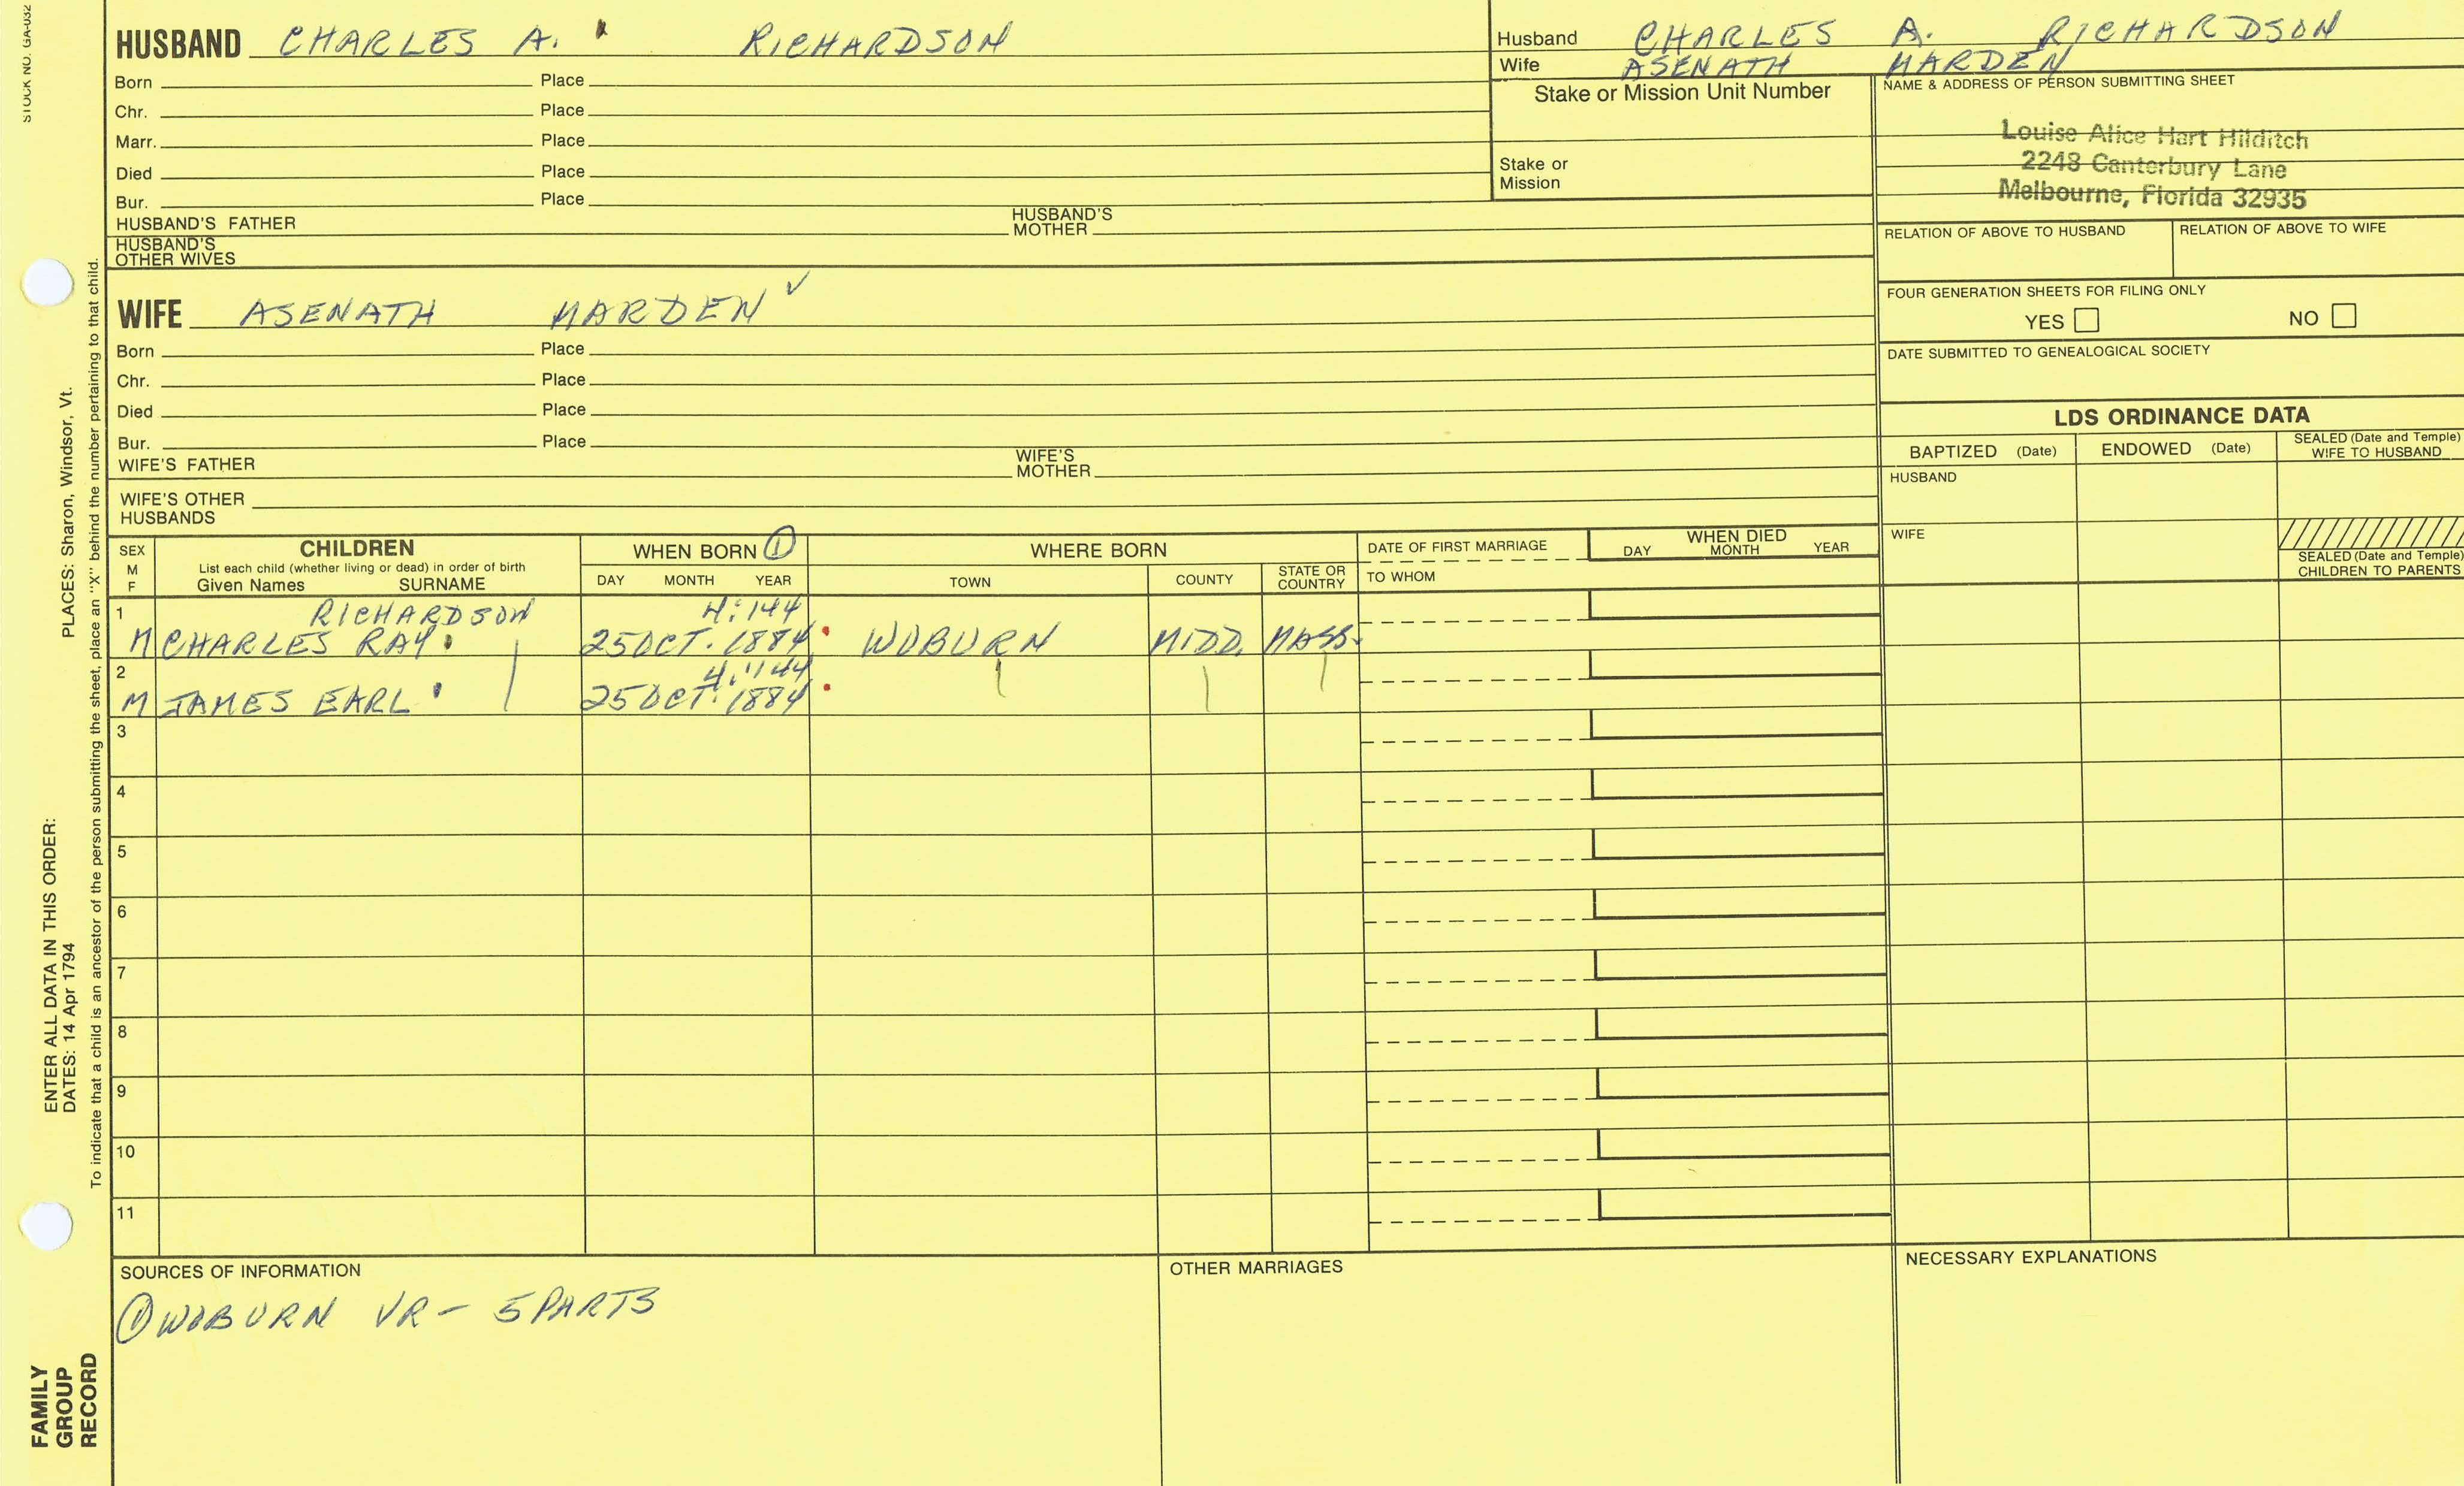 STOCK NO. GA-032
HUSBAND CHARLES A. RICHARDSON
Born Place
Chr. Place
Marr. Place
Died Place
Bur. Place
HUSBAND'S FATHER HUSBAND'S MOTHER
HUSBAND'S OTHER WIVES
Husband CHARLES A. RICHARDSON
Wife ASENATH MARDEN
Stake or Mission Unit Number
Stake or Mission
NAME & ADDRESS OF PERSON SUBMITTING SHEET
Louise Alice Hart Hilditch
2248 Canterbury Lane
Melbourne, Florida 32935
RELATION OF ABOVE TO HUSBAND RELATION OF ABOVE TO WIFE
FOUR GENERATION SHEETS FOR FILING ONLY
YES NO
DATE SUBMITTED TO GENEALOGICAL SOCIETY
WIFE ASENATH MARDEN ✓
Born Place
Chr. Place
Died Place
Bur. Place
WIFE'S FATHER WIFE'S MOTHER
WIFE'S OTHER HUSBANDS
LDS ORDINANCE DATA
BAPTIZED (Date) ENDOWED (Date) SEALED (Date and Temple) WIFE TO HUSBAND
HUSBAND
WIFE
SEALED (Date and Temple) CHILDREN TO PARENTS
SEX M F
CHILDREN
List each child (whether living or dead) in order of birth
Given Names SURNAME
WHEN BORN ①
DAY MONTH YEAR
WHERE BORN
TOWN COUNTY STATE OR COUNTRY
DATE OF FIRST MARRIAGE
TO WHOM
WHEN DIED
DAY MONTH YEAR
1 RICHARDSON 4:144
M CHARLES RAY 25 OCT. 1884 WOBURN MIDD. MASS.
2 4:144
M JAMES EARL 25 OCT. 1884
3
4
5
6
7
8
9
10
11
SOURCES OF INFORMATION
① WOBURN VR - 5 PARTS
OTHER MARRIAGES
NECESSARY EXPLANATIONS
PLACES: Sharon, Windsor, Vt.
ENTER ALL DATA IN THIS ORDER:
DATES: 14 Apr 1794
To indicate that a child is an ancestor of the person submitting the sheet, place an "X" behind the number pertaining to that child.
FAMILY
GROUP
RECORD